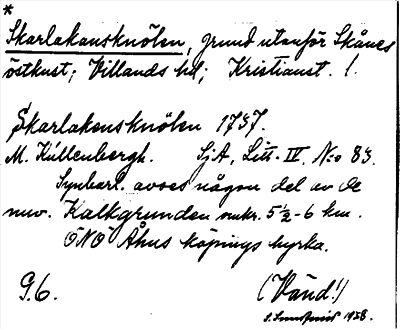 *
Skarlakansknölen, grund utanför Skånes
östkust; Villands hd; Kristianst. l.
Skarlakensknölen 1737.
M. Küllenbergh. SjA, Litt. IV. No 83.
Synbarl. avses någon del av de
nuv. Kalkgrunden omkr. 5½-6 km.
ÖNÖ Åhus köpings kyrka.
9.6. (Vänd!)
1928.